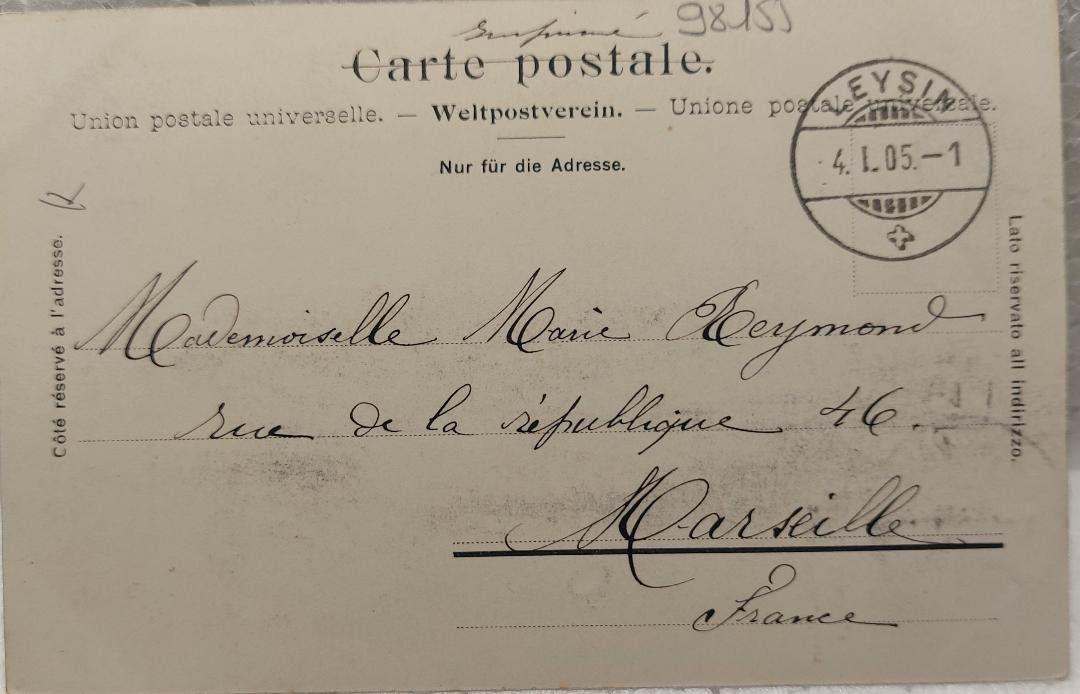 Imprimé 98155
Carte postale.
Union postale universelle. — Weltpostverein. — Unione postale universale.
Nur für die Adresse.
LEYSIN
4. I. 05. – 1
Côté réservé à l'adresse.
Lato riservato all indirizzo.
Mademoiselle Marie Reymond
rue de la république 46.
Marseille
France